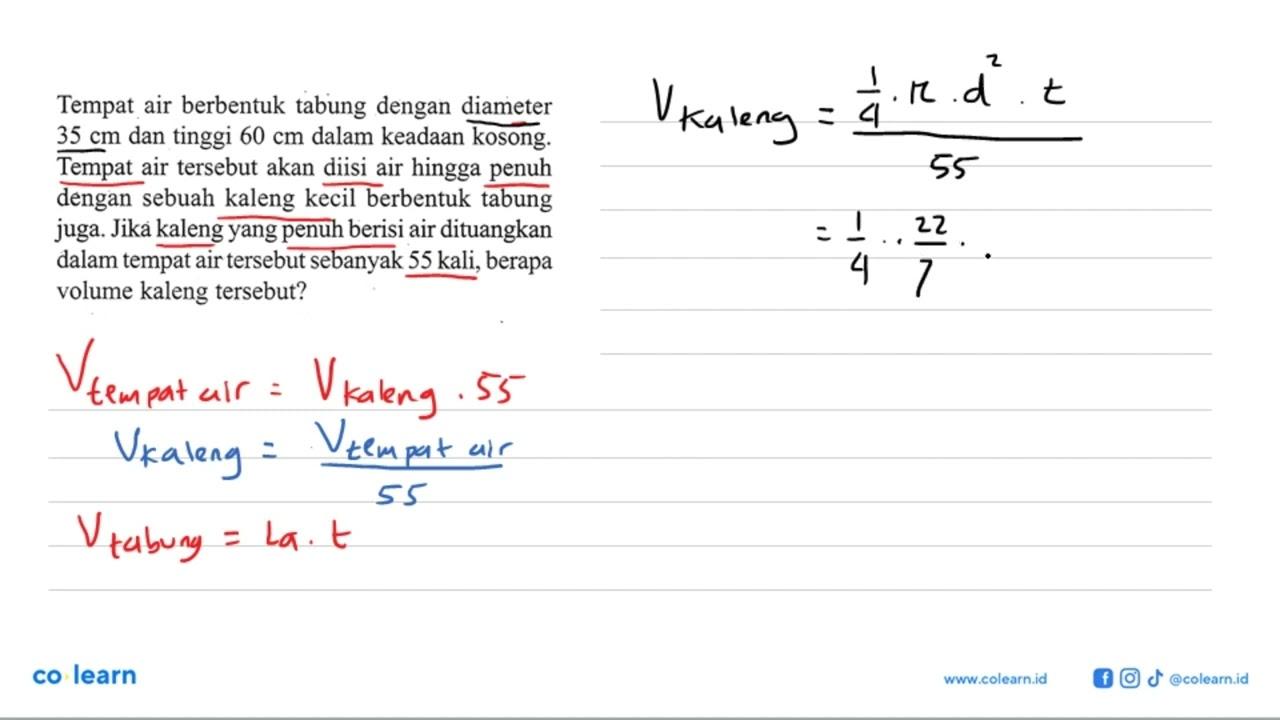 Tempat air berbentuk tabung dengan diameter
35 cm dan tinggi 60 cm dalam keadaan kosong.
Tempat air tersebut akan diisi air hingga penuh
dengan sebuah kaleng kecil berbentuk tabung
juga. Jika kaleng yang penuh berisi air dituangkan
dalam tempat air tersebut sebanyak 55 kali, berapa
volume kaleng tersebut?
V tempat air = V kaleng . 55
V kaleng = V tempat air / 55
V tabung = La . t
V kaleng = 1/4 . π . d² . t / 55
= 1/4 . . 22/7 .
co learn
www.colearn.id
@colearn.id